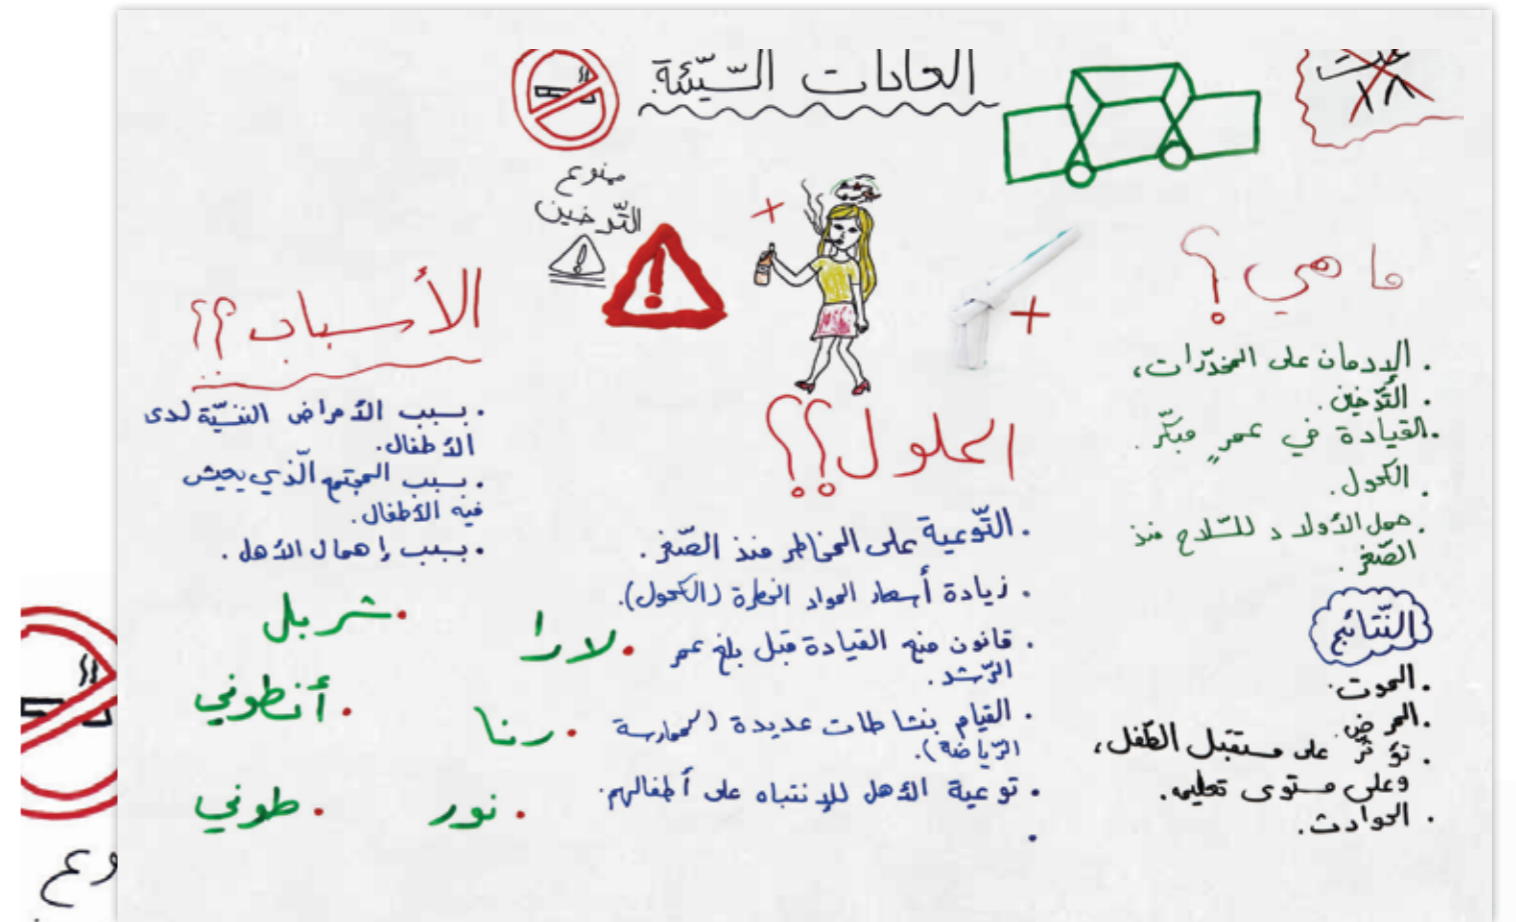 العادات السّيّئة.
١٨
ممنوع
التّدخين
ما هي؟
. الإدمان على المخدّرات،
. التّدخين.
. القيادة في عمرٍ مبكّر.
. الكحول.
. حمل الأولاد للسّلاح منذ
الصّغر.
النّتائج
. الموت.
. المرض.
. تؤثّر على مستقبل الطّفل،
وعلى مستوى تعليمه.
. الحوادث.
الحلول؟؟
. التّوعية على المخاطر منذ الصّغر.
. زيادة أسعار المواد الخطرة (الكحول).
. قانون منع القيادة قبل بلغ عمر
الرّشد.
. القيام بنشاطات عديدة (كممارسة
الرّياضة).
. توعية الأهل للإنتباه على أطفالهم.
الأسباب؟؟
. بسبب الأمراض النفسيّة لدى
الأطفال.
. بسبب المجتمع الّذي يعيش
فيه الأطفال.
. بسبب إهمال الأهل.
. شربل
. لارا
. أنطوني
. رنا
. طوني
. نور
وع